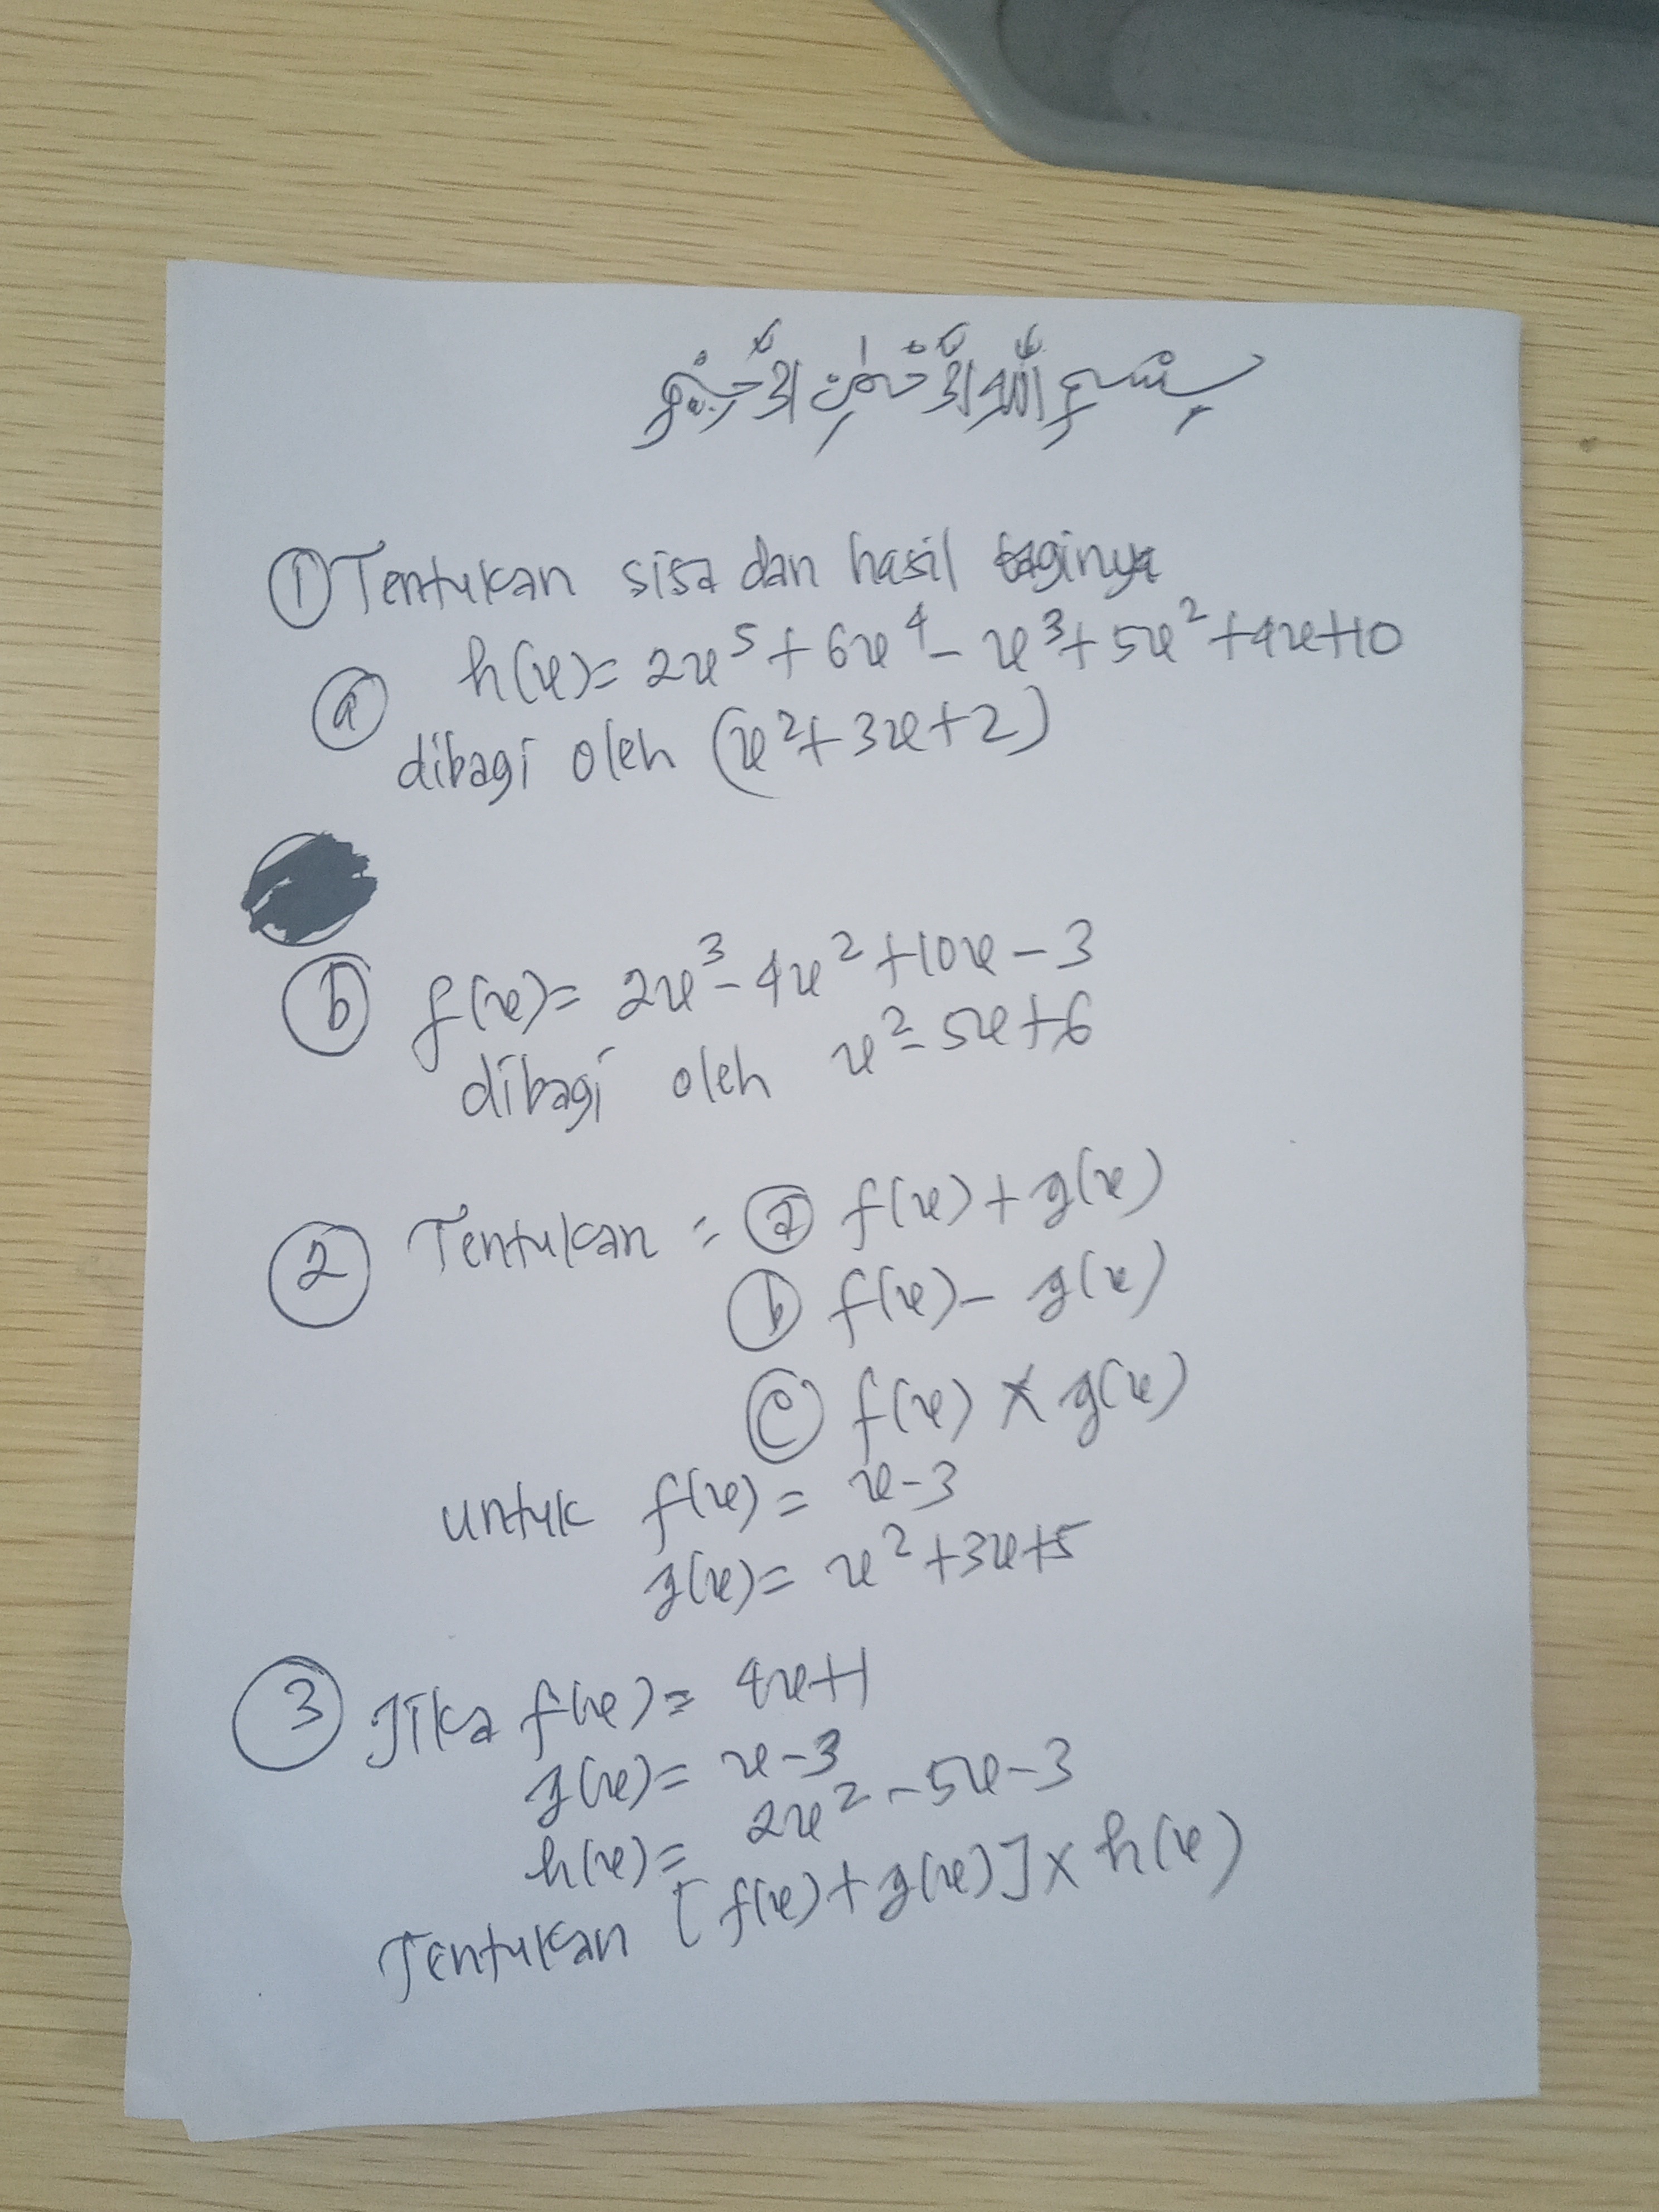 بِسْمِ اللّٰهِ الرَّحْمٰنِ الرَّحِيْمِ
① Tentukan sisa dan hasil baginya
ⓐ h(x) = 2x⁵ + 6x⁴ - x³ + 5x² + 4x + 10
dibagi oleh (x² + 3x + 2)
ⓑ f(x) = 2x³ - 4x² + 10x - 3
dibagi oleh x² - 5x + 6
② Tentukan = ⓐ f(x) + g(x)
ⓑ f(x) - g(x)
ⓒ f(x) × g(x)
untuk f(x) = x - 3
g(x) = x² + 3x + 5
③ Jika f(x) = 4x + 1
g(x) = x - 3
h(x) = 2x² - 5x - 3
Tentukan [f(x) + g(x)] × h(x)